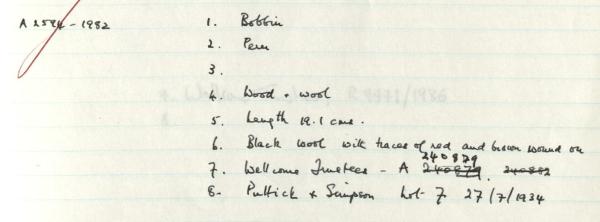 A 2594 - 1982
1. Bobbin
2. Peru
3.
4. Wood + wool
5. Length 19.1 cms.
6. Black wool with traces of red and brown wound on
240879
7. Wellcome Trustees - A 240879. 240882
8. Puttick & Simpson Lot 7 27/7/1934